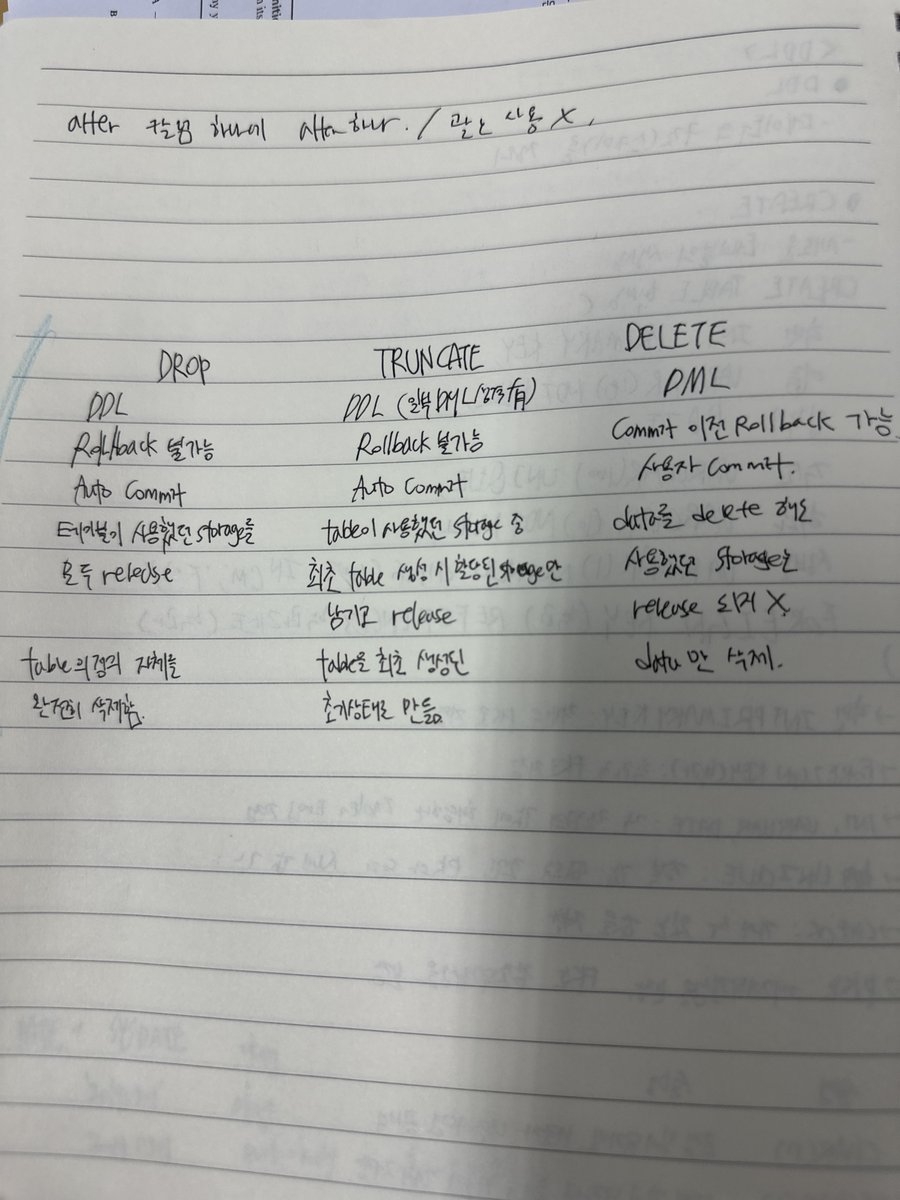 alter 컬럼 하나에 alter 하나. / 괄호 사용 X.
DROP
DDL
Rollback 불가능
Auto Commit
테이블이 사용했던 storage를
모두 release
table의 정의 자체를
완전히 삭제함.
TRUNCATE
DDL (일부 DML 성격 有)
Rollback 불가능
Auto Commit
table이 사용했던 storage 중
최초 table 생성 시 할당된 storage만
남기고 release
table을 최초 생성된
초기상태로 만듦.
DELETE
DML
Commit 이전 Rollback 가능
사용자 Commit.
data를 delete 해도
사용했던 storage는
release 되지 X
data 만 삭제.